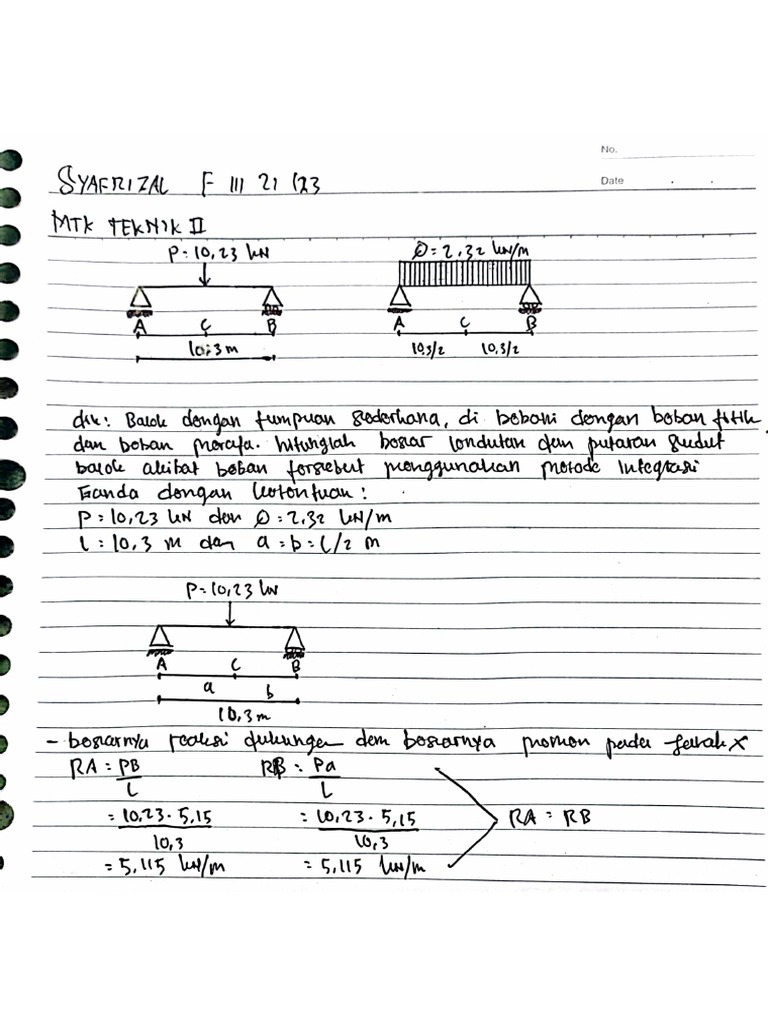 No.
Date
SYAFRIZAL F 111 21 123
MTK TEKNIK II
P = 10,23 kN
Q = 2,32 kN/m
A C B
A C B
10,3 m
10,3/2 10,3/2
dik: Balok dengan tumpuan sederhana, di bebani dengan beban titik
dan beban merata. hitunglah besar lendutan dan putaran sudut
balok akibat beban tersebut menggunakan metode integrasi
Ganda dengan ketentuan:
P = 10,23 kN dan Q = 2,32 kN/m
L = 10,3 m dan a = b = L/2 m
P = 10,23 kN
A C B
a b
10,3 m
- besarnya reaksi dukungan dan besarnya momen pada jarak x
RA = PB/L RB = Pa/L
= 10,23 . 5,15 / 10,3 = 10,23 . 5,15 / 10,3 RA = RB
= 5,115 kN/m = 5,115 kN/m